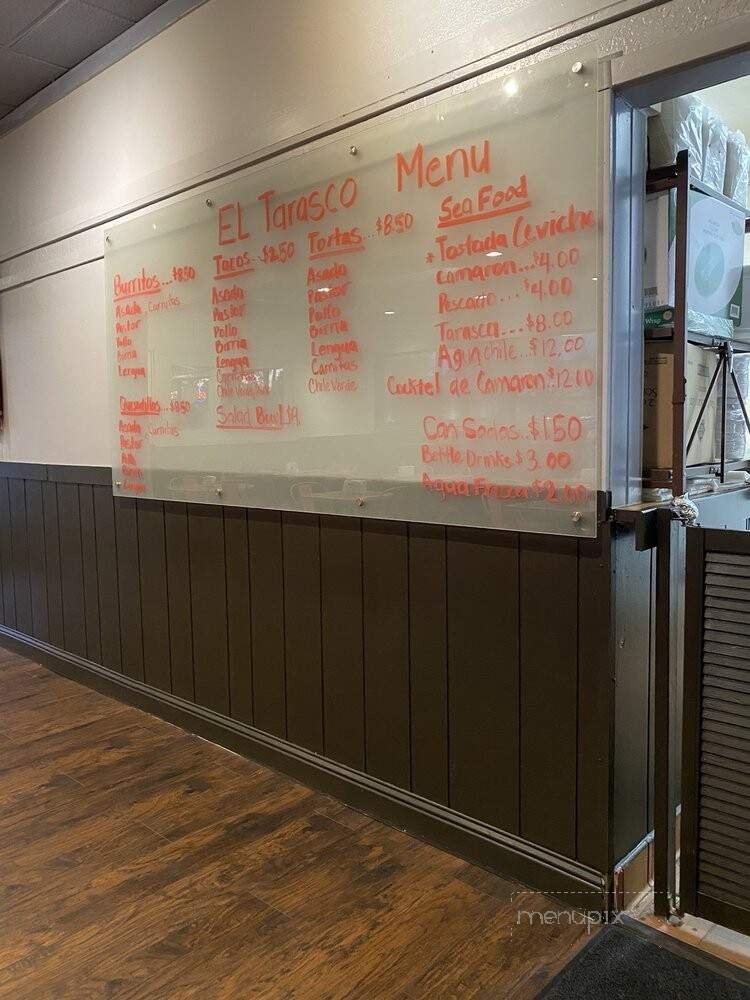 EL Tarasco Menu
Burritos...$8.50
Asada, Carnitas
Pastor
Pollo
Birria
Lengua
Quesadillas..$8.50
Asada, Carnitas
Pastor
Pollo
Birria
Lengua
Tacos...$2.50
Asada
Pastor
Pollo
Birria
Lengua
Carnitas
Chile Verde
Salad Bowl $9
Tortas...$8.50
Asada
Pastor
Pollo
Birria
Lengua
Carnitas
Chile Verde
Sea Food
* Tostada Ceviche
Camaron...$4.00
Pescado...$4.00
Tarasca...$8.00
Agua chile...$12.00
Cocktel de Camaron.$12.00
Can Sodas..$1.50
Bottle Drinks $3.00
Agua Fresca $2.00
menupix